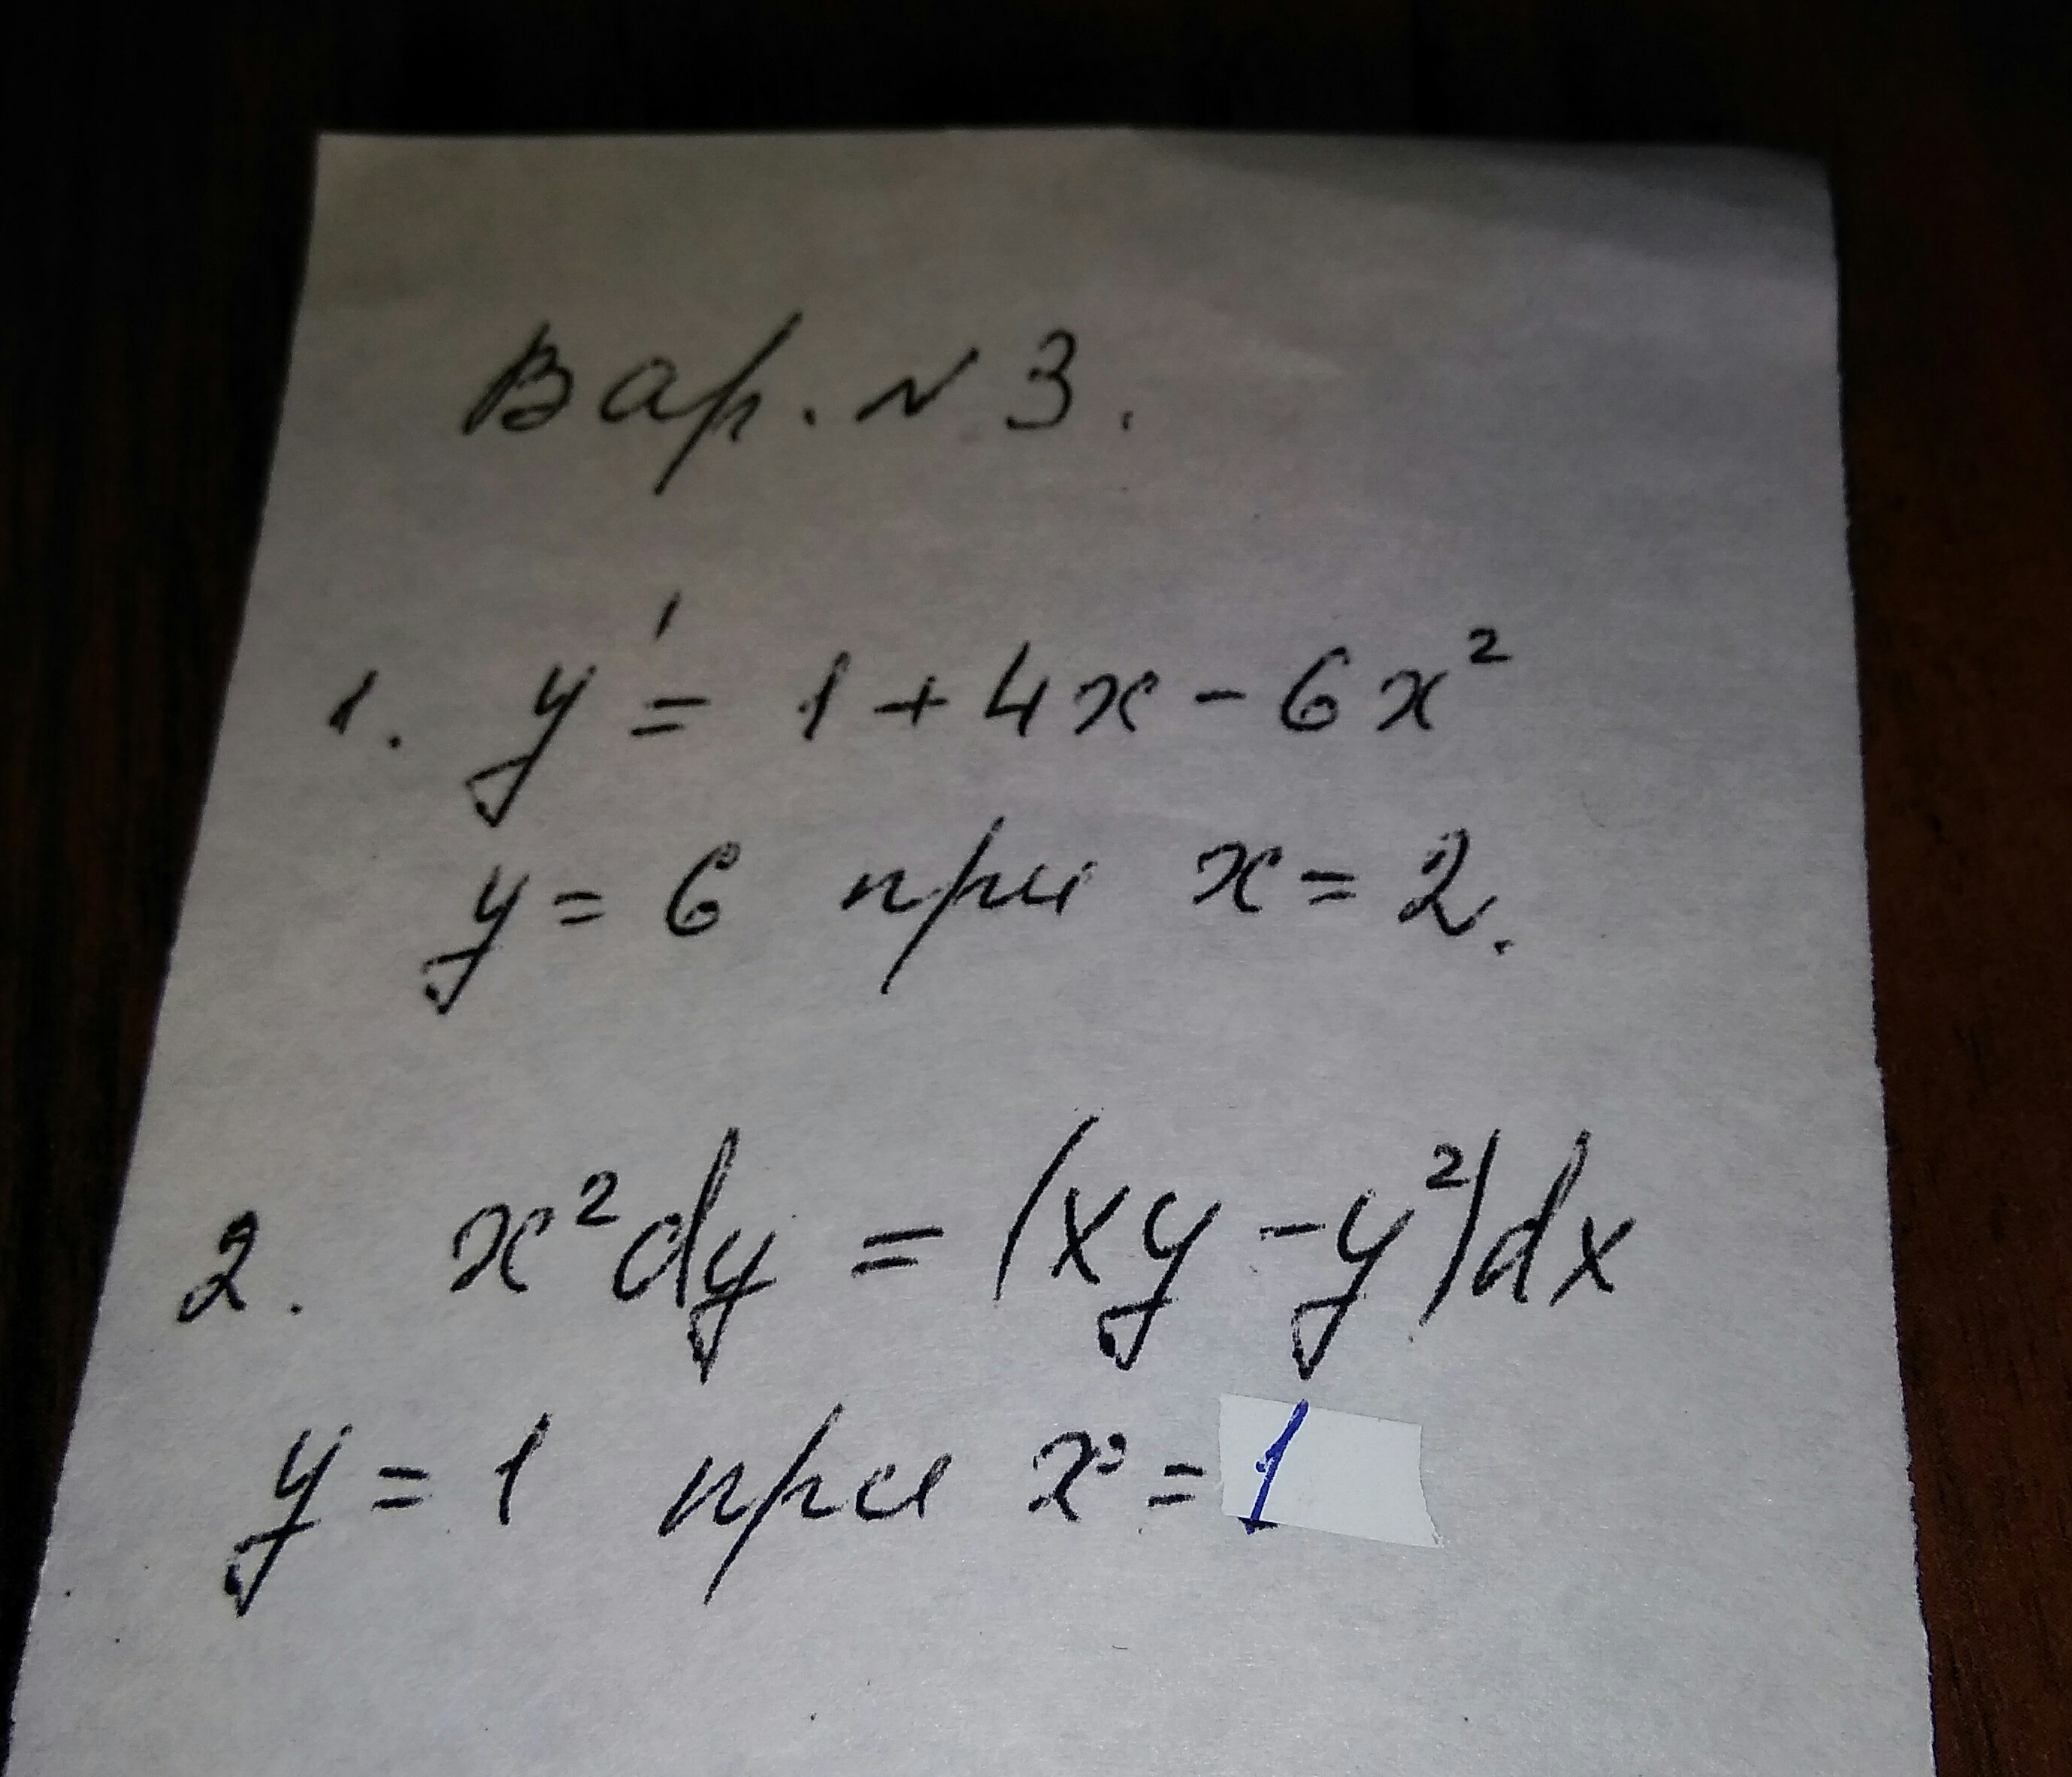 Вар. N 3.
1. y' = 1 + 4x - 6x²
y = 6 при x = 2.
2. x²dy = (xy - y²)dx
y = 1 при x = 1